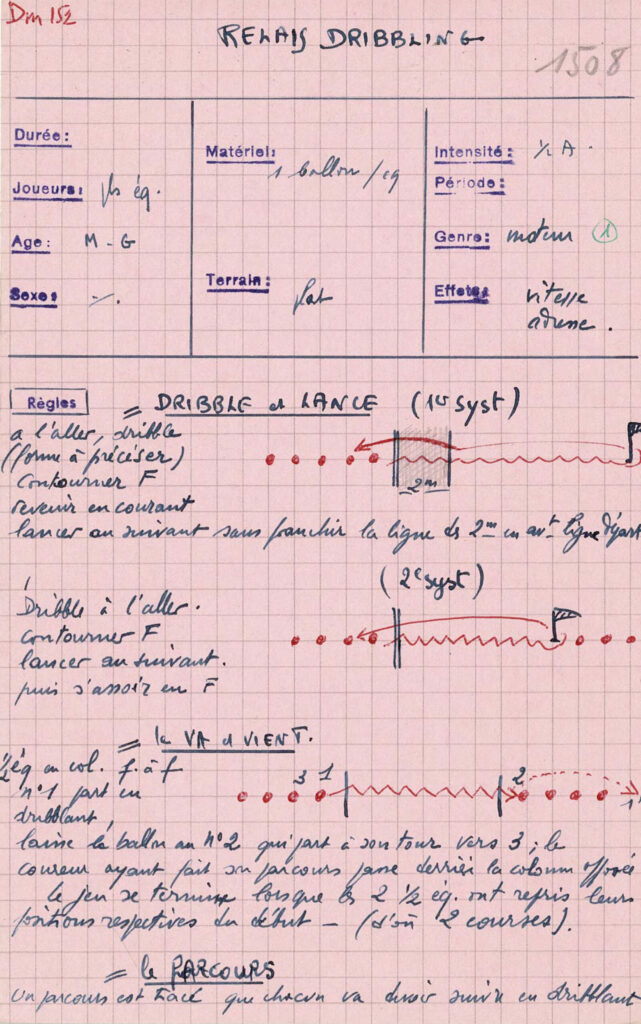 Dm 152
RELAIS DRIBBLING
1508
Durée:
Joueurs: pls éq.
Age: M - G
Sexe: -/.
Matériel: 1 ballon / eq
Terrain: plat
Intensité: 1/2 A.
Période:
Genre: moteur 1
Effets: vitesse
adresse.
Règles
= DRIBBLE et LANCE (1er syst)
a l'aller, dribble
(forme à préciser)
contourner F
revenir en courant
2m
lancer au suivant sans franchir la ligne des 2m en avt ligne départ
(2e syst)
Dribble à l'aller.
contourner F
lancer au suivant.
puis s'assoir en F
= le VA et VIENT.
1/2 éq en col. f. à f
3 1 2
n°1 part en
1
dribblant,
laisse le ballon au n°2 qui part à son tour vers 3 ; le
coureur ayant fait son parcours passe derrière la colonne opposée
le jeu se termine lorsque les 2 1/2 éq. ont repris leurs
positions respectives du début - (d'où 2 courses).
= le PARCOURS
Un parcours est tracé que chacun va devoir suivre en dribblant